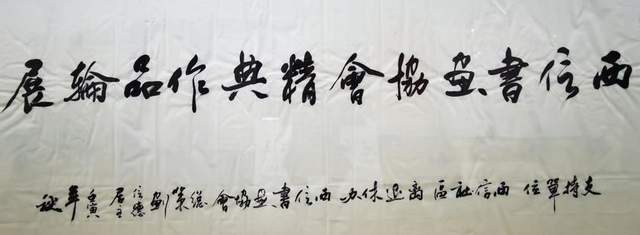 西信書畫協會精典作品輪展
支持單位 西信社區離退休办 西信書畫協會總策劃 信德居士 壬寅年秋